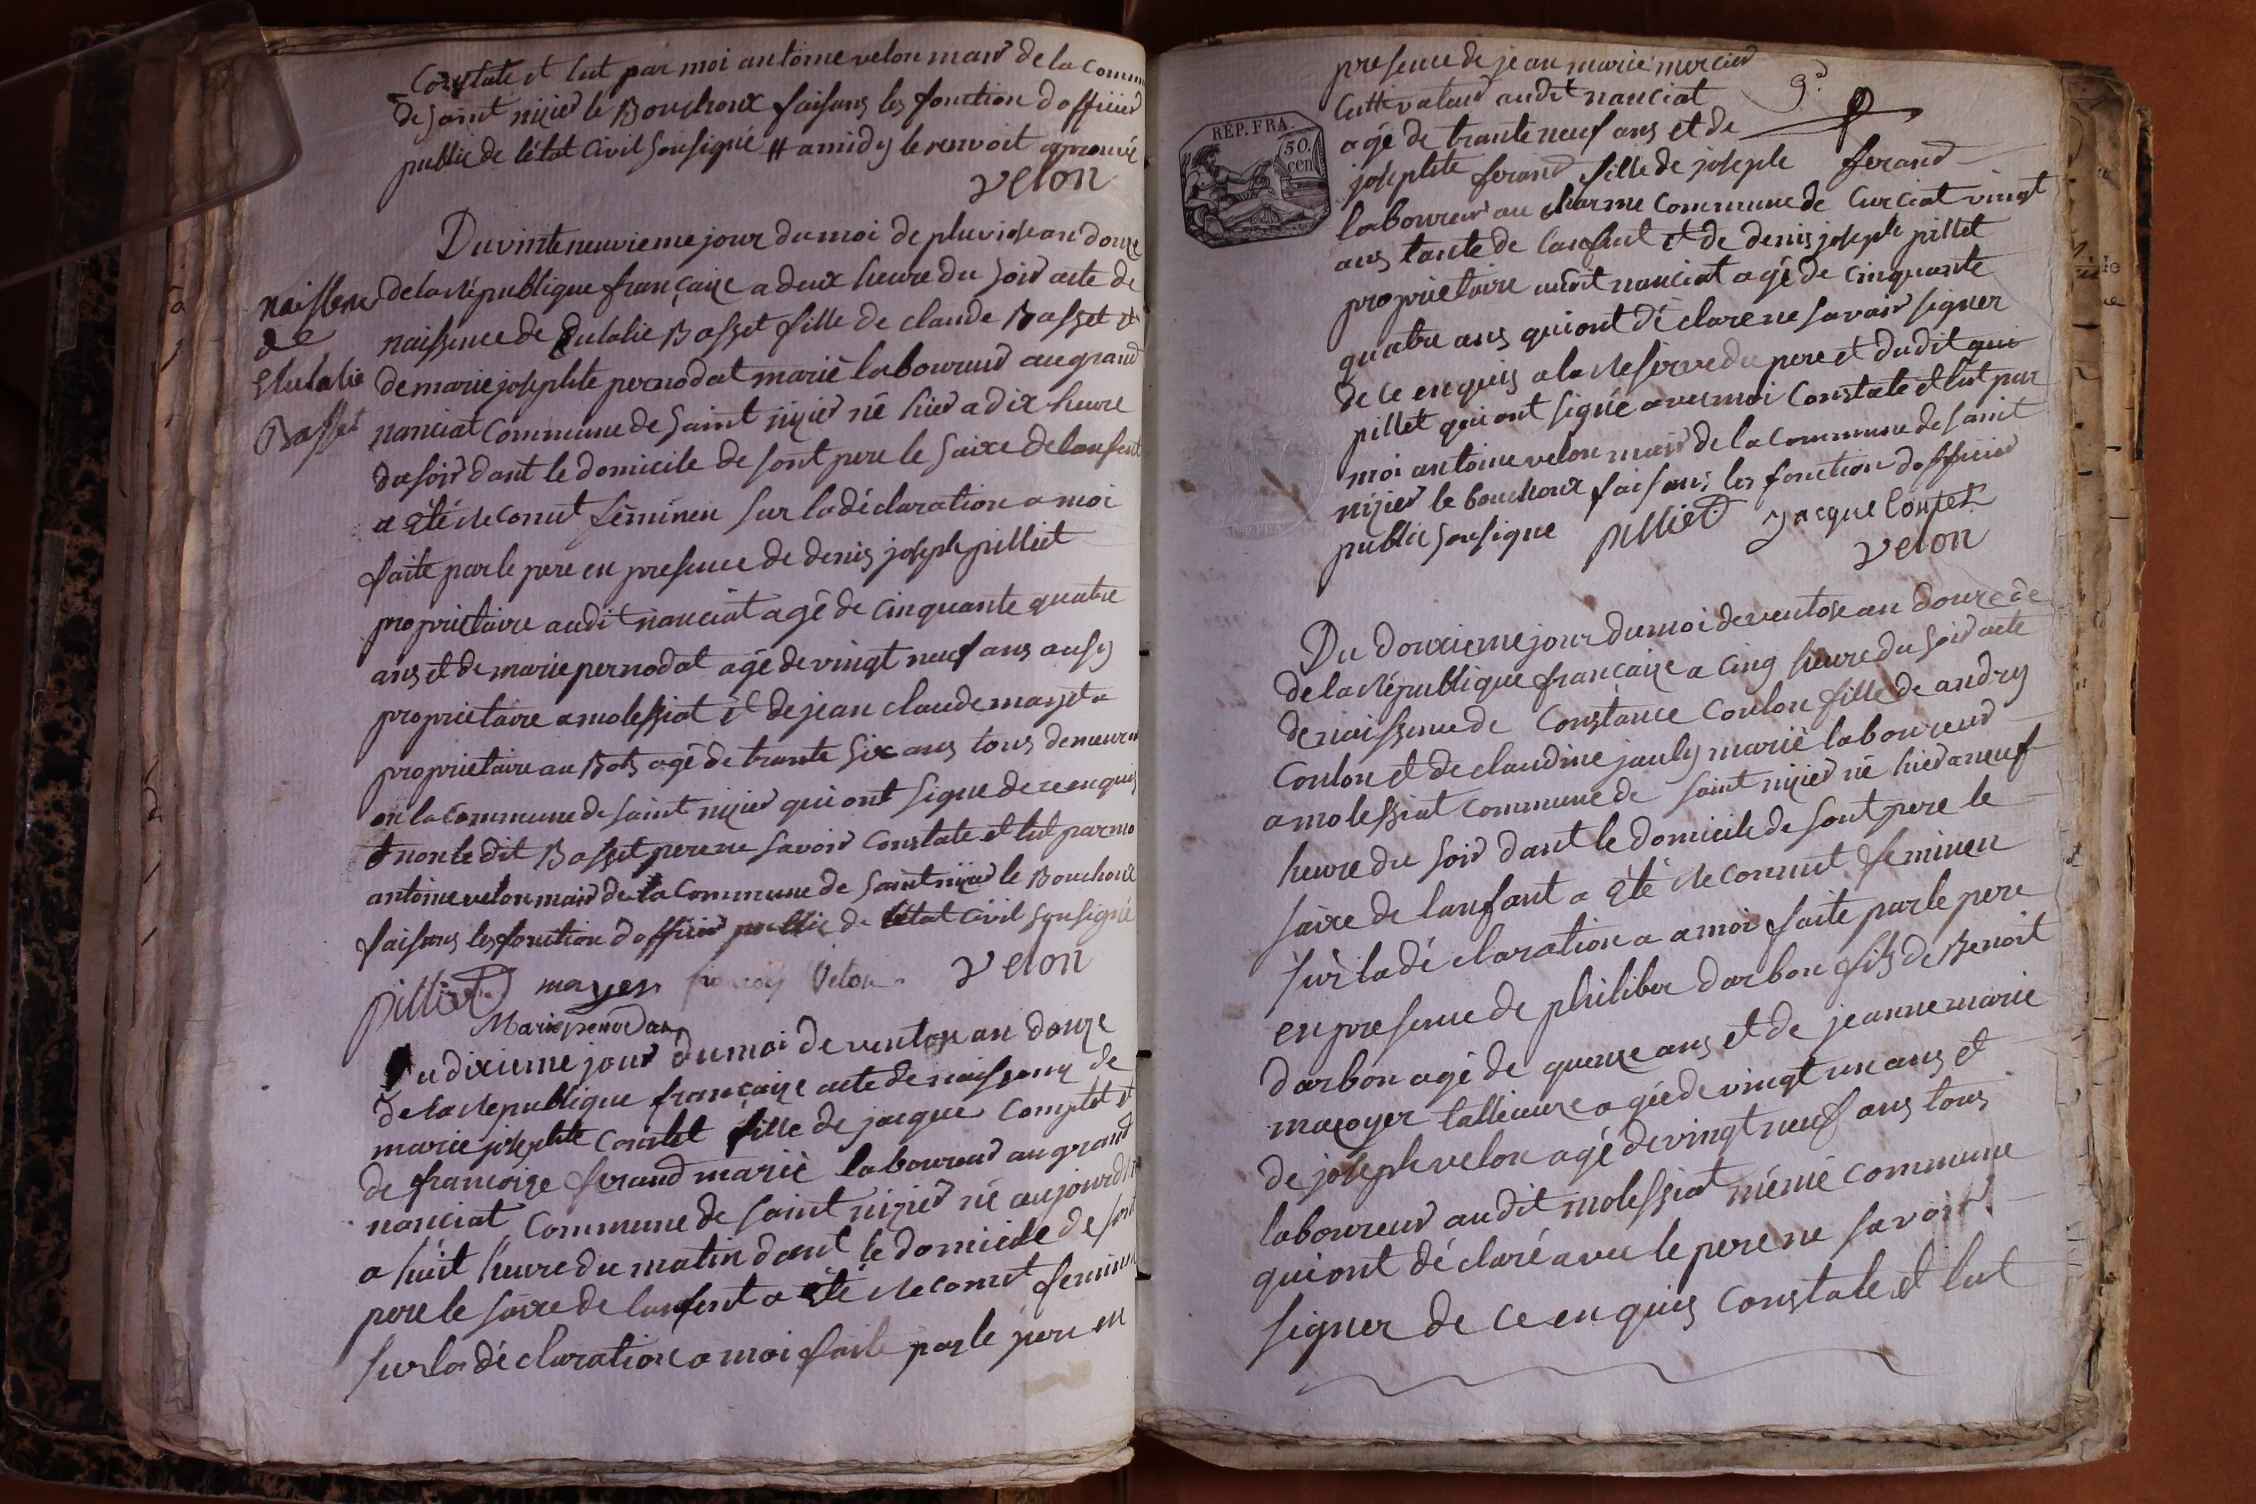 Constate et lut par moi antoine velon mair de la Commu
de saint nizier le Bouchoux faisans les fonction dofficier
public de létat Civil sousigné # a midy le renvoit aprouvé
velon
Du vinte neuvieme jour du moi de pluviose an douze
de la République française a deux heure du soir acte de
naissence de Eulalie Basset fille de claude Basset et
de marie josephte pernodat marié laboureur au grand
nanciat Commune de saint nizier né hier a dix heure
du soir dant le domicile de sont pere le saixe de lenfent
a été reconut féminen sur la déclaration a moi
faite par le pere en presence de denis joseph pilliet
proprietaire audit nanciat agé de cinquante quatre
ans et de marie pernodat agé de vingt neuf ans ausy
proprietaire a molessiat et de jean claude
proprietaire au Bots agé de trante six ans tous demeura
en la Commune de saint nizier qui ont signe de ce enquis
et non le dit Basset pere ne savoir Constate et lut par mo
antoine velon mair de la Commune de saint nizier le Bouchoux
faisans les fonction dofficier public de létat civil sousigné
naissene
de
Elulalie
Basset
pilliet mayer françois Velon velon
Marie pernodat
Du dixieme jour du moi de ventose an douze
de la République française acte de naissence de
marie josephte Contet fille de jacque Comptet et
de françoize ferand marié laboureur au grand
nanciat Commune de saint nizier né aujourdhi
a huit heure du matin dant le domicile de sont
pere le saixe de lanfent a été reconut feminen
sur la déclaration a moi faite par le pere en
presence de jean marie mercier
Cultivateur audit nanciat
agé de trante neuf ans et de
josephte ferand fille de joseple ferand
laboureur au charme Commune de Curciat vingt
ans tante de lanfent et de denis joseph pillet
proprietaire audit nanciat agé de cinquante
quatre ans qui ont déclare ne savoir signer
de ce enquis a la Réserve du pere et dudit qui
pillet qui ont signé avec moi Constate et lut par
moi antoine velon mair de la Commune de saint
nizier le bouchoux faisans les fonction dofficier
public sousigne pilliet jacque Contet
velon
9.e
RÉP. FRA.
50.
cen
Du douxieme jour du moi de ventose an douze de
de la République francaize a cinq heure du soir acte
de naissence de Constance Coulon fille de andry
Coulon et de claudine jauly marié laboureur
a molessiat Commune de saint nizier né hier a neuf
heure du soir dant le domicile de sont pere le
saixe de lanfant a été Reconnut feminen
sur la déclaration a a moi faite par le pere
en presence de philiber darbon fils de Benoit
darbon agé de quenze ans et de jeanne marie
mazoyer tallieuze agée de vingt un ans et
de joseph velon agé de vingt neuf ans tous
laboureur audit molessiat méme Commune
qui ont déclaré avec le pere ne savoir
signer de ce enquis Constate et lut